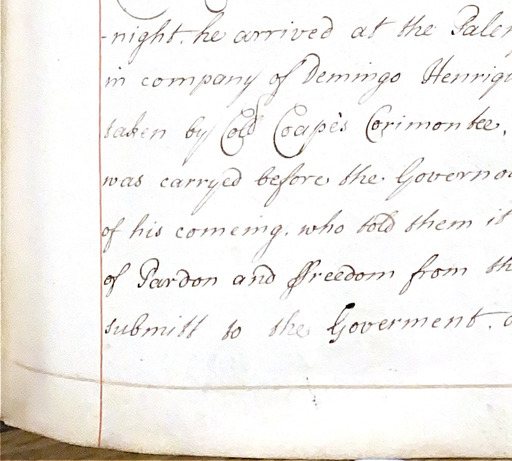 -night, he arrived at the Palen
in company of Demingo Henriqu
taken by Coll Coape's Corimontee,
was carryed before the Governou
of his comeing, who told them it
of Pardon and ffreedom from th
submitt to the Goverment.